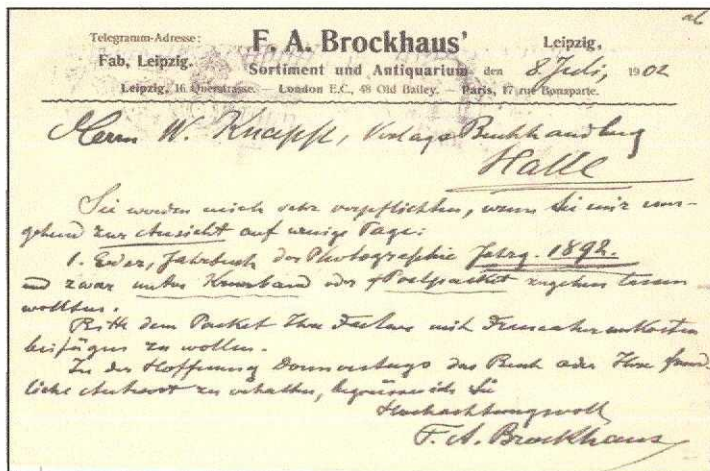 ab
Telegramm-Adresse:
Fab, Leipzig.
F. A. Brockhaus'
Sortiment und Antiquarium
Leipzig,
den 8. Juli, 1902
Leipzig, 16 Querstrasse. — London E.C., 48 Old Bailey. — Paris, 17 rue Bonaparte.
Herrn W. Knapp, Verlags Buchhandlung
Halle
Sie würden mich sehr verpflichten, wenn Sie mir um-
gehend zur Ansicht auf wenige Tage:
1. Eder, Jahrbuch der Photographie Jahrg. 1892.
und zwar unter Kreuzband oder Postpacket zugehen lassen
wollten.
Bitte dem Packet Ihre Factur mit
beifügen zu wollen.
In der Hoffnung Donnerstags das Buch oder Ihre freund-
liche Antwort zu erhalten, begrüsse ich Sie
Hochachtungsvoll
F. A. Brockhaus